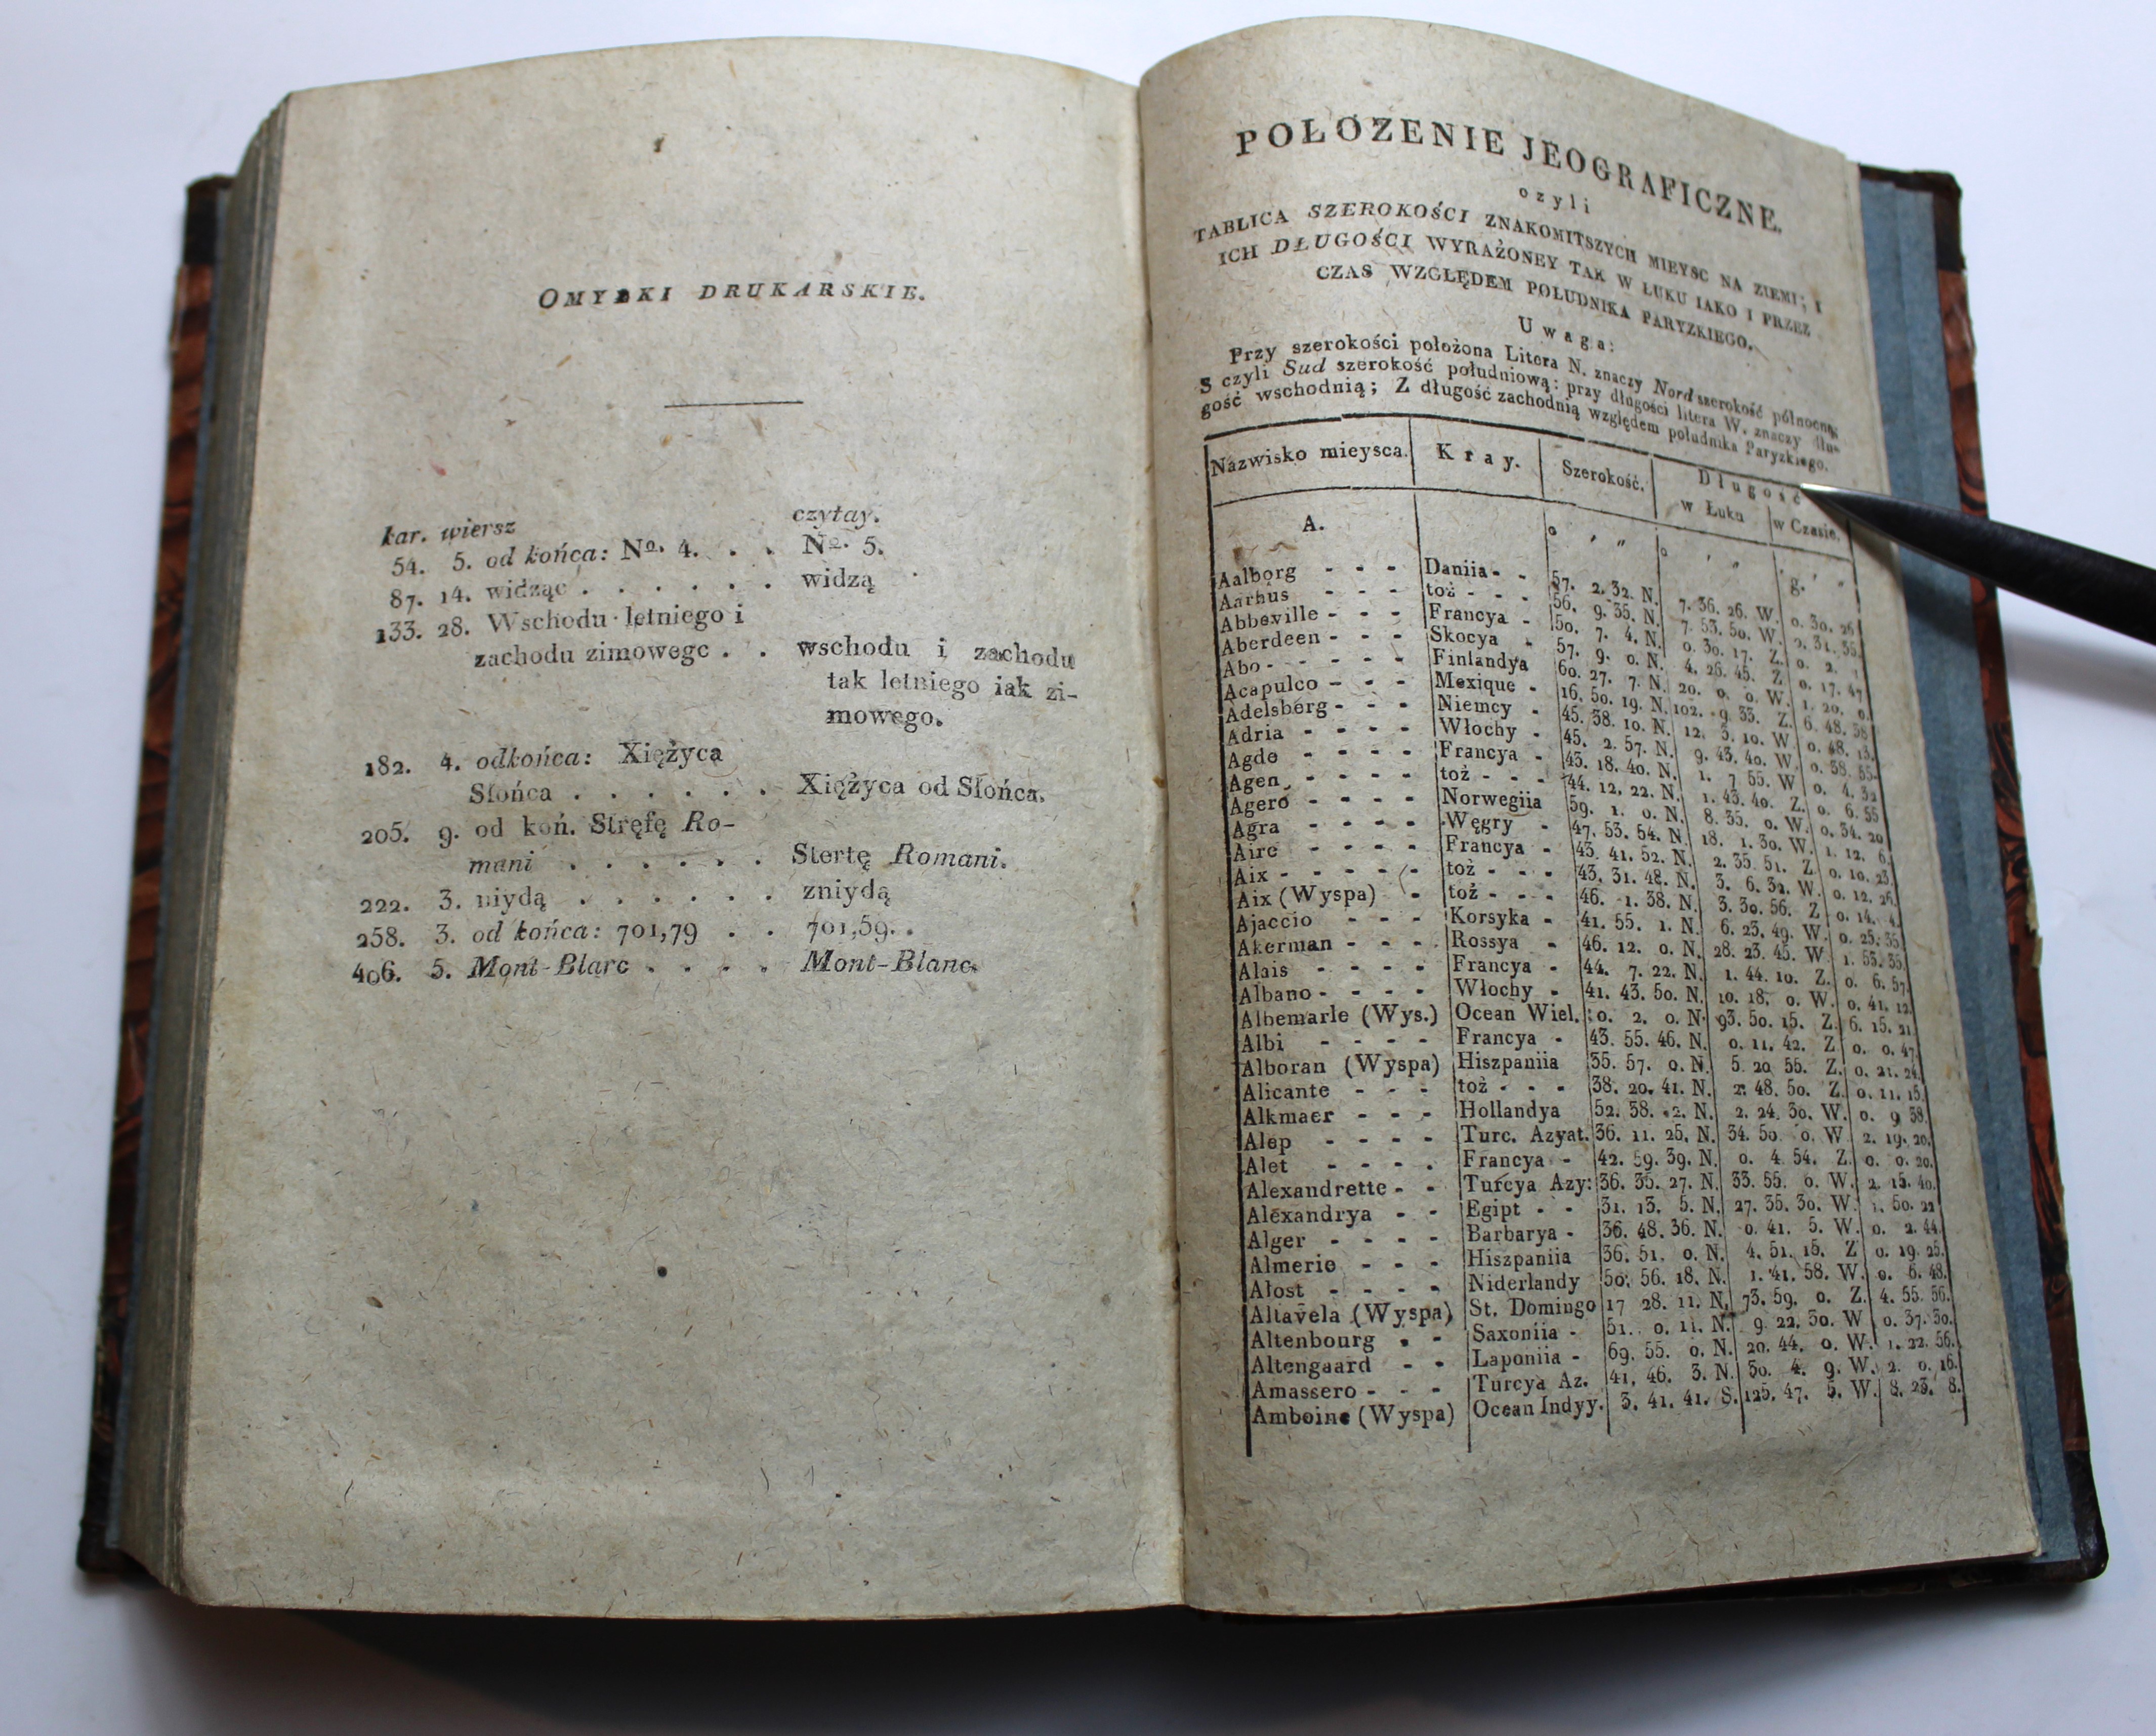 OMYŁKI DRUKARSKIE.
kar. wiersz czytay.
54. 5. od końca: Nº. 4. . . Nº. 5.
87. 14. widząc . . . . . . widzą
133. 28. Wschodu letniego i
zachodu zimowego . . wschodu i zachodu
tak letniego iak zi-
mowego.
182. 4. odkońca: Xiężyca
Słońca . . . . . . Xiężyca od Słońca.
205. 9. od koń. Strefę Ro-
mani . . . . . . Stertę Romani.
222. 3. niydą . . . . . . zniydą
258. 3. od końca: 701,79 . . 701,59.
406. 5. Mont-Blarc . . . . Mont-Blanc.
POŁOZENIE JEOGRAFICZNE.
czyli
TABLICA SZEROKOŚCI ZNAKOMITSZYCH MIEYSC NA ZIEMI; I
ICH DŁUGOŚCI WYRAŻONEY TAK W ŁUKU IAKO I PRZEZ
CZAS WZGLĘDEM POŁUDNIKA PARYZKIEGO.
Uwaga:
Przy szerokości położona Litera N. znaczy Nord szerokość północną;
S czyli Sud szerokość południową: przy długości litera W. znaczy dłu-
gość wschodnią; Z długość zachodnią względem południka Paryzkiego.
Nazwisko mieysca. Kray. Szerokość. Długość
w Łuku w Czasie.
A. ° ' " ° ' " g. ' "
Aalborg - - - Daniia - - 57. 2. 32. N. 7. 36. 26. W. 0. 30. 26
Aarhus - - - toż - - - 56. 9. 35. N. 7. 53. 50. W. 0. 31. 35.
Abbeville - - - Francya - 50. 7. 4. N. 0. 30. 17. Z. 0. 2. 1
Aberdeen - - - Skocya - 57. 9. 0. N. 4. 26. 45. Z. 0. 17. 47
Abo - - - - - Finlandya 60. 27. 7. N. 20. 0. 0. W. 1. 20. 0.
Acapulco - - - Mexique - 16. 50. 19. N. 102. 9. 33. Z. 6. 48. 38
Adelsberg - - - Niemcy - 45. 38. 10. N. 12. 3. 10. W. 0. 48. 13.
Adria - - - - Włochy - 45. 2. 57. N. 9. 43. 40. W. 0. 38. 55.
Agde - - - - Francya - 43. 18. 40. N. 1. 7. 55. W 0. 4. 32
Agen - - - - toż - - - 44. 12. 22. N. 1. 43. 40. Z. 0. 6. 55
Agerö - - - - Norwegiia 59. 1. 0. N. 8. 35. 0. W. 0. 34. 20
Agra - - - - Węgry - 47. 53. 54. N 18. 1. 30. W. 1. 12. 6.
Aire - - - - Francya - 43. 41. 52. N. 2. 35. 51. Z. 0. 10. 23.
Aix - - - - - toż - - - 43. 31. 48. N. 3. 6. 32. W. 0. 12. 26.
Aix (Wyspa) - toż - - - 46. 1. 38. N. 3. 30. 56. Z 0. 14. 4.
Ajaccio - - - Korsyka - 41. 55. 1. N. 6. 23. 49. W. 0. 25. 35.
Akerman - - - Rossya - 46. 12. 0. N. 28. 23. 45. W. 1. 53. 35.
Alais - - - - Francya - 44. 7. 22. N. 1. 44. 10. Z. 0. 6. 57.
Albano - - - - Włochy - 41. 43. 50. N. 10. 18. 0. W. 0. 41. 12.
Albemarle (Wys.) Ocean Wiel. 0. 2. 0. N. 93. 50. 15. Z. 6. 15. 21.
Albi - - - - Francya - 43. 55. 46. N. 0. 11. 42. Z 0. 0. 47.
Alboran (Wyspa) Hiszpaniia 35. 57. 0. N. 5. 20 55. Z. 0. 21. 24.
Alicante - - - toż - - - 38. 20. 41. N. 2. 48. 50. Z. 0. 11. 15.
Alkmaer - - - Hollandya 52. 38. 2. N. 2. 24. 30. W. 0. 9 38.
Alep - - - - Turc. Azyat. 36. 11. 25. N. 34. 50. 0. W. 2. 19. 20.
Alet - - - - Francya - 42. 59. 39. N. 0. 4 54. Z. 0. 0. 20.
Alexandrette - - Turcya Azy: 36. 35. 27. N. 33. 55. 0. W. 2. 15. 40.
Alexandrya - - Egipt - - 31. 13. 5. N. 27. 35. 30. W. 1. 50. 22
Alger - - - - Barbarya - 36. 48. 36. N. 0. 41. 5. W. 0. 2. 44.
Almerie - - - Hiszpaniia 36. 51. 0. N. 4. 51. 15. Z 0. 19. 25.
Ałost - - - - Niderlandy 50. 56. 18. N. 1. 41. 58. W. 0. 6. 48.
Altavela (Wyspa) St. Domingo 17 28. 11. N. 73. 59. 0. Z. 4. 55. 56.
Altenbourg - - Saxoniia - 51. 0. 11. N. 9. 22. 30. W 0. 37. 30.
Altengaard - - Laponiia - 69. 55. 0. N. 20. 44. 0. W. 1. 22. 56.
Amassero - - - Turcya Az. 41. 46. 3. N. 30. 4. 9. W. 2. 0. 16.
Amboine (Wyspa) Ocean Indyy. 3. 41. 41. S. 125. 47. 5. W. 8. 23. 8.